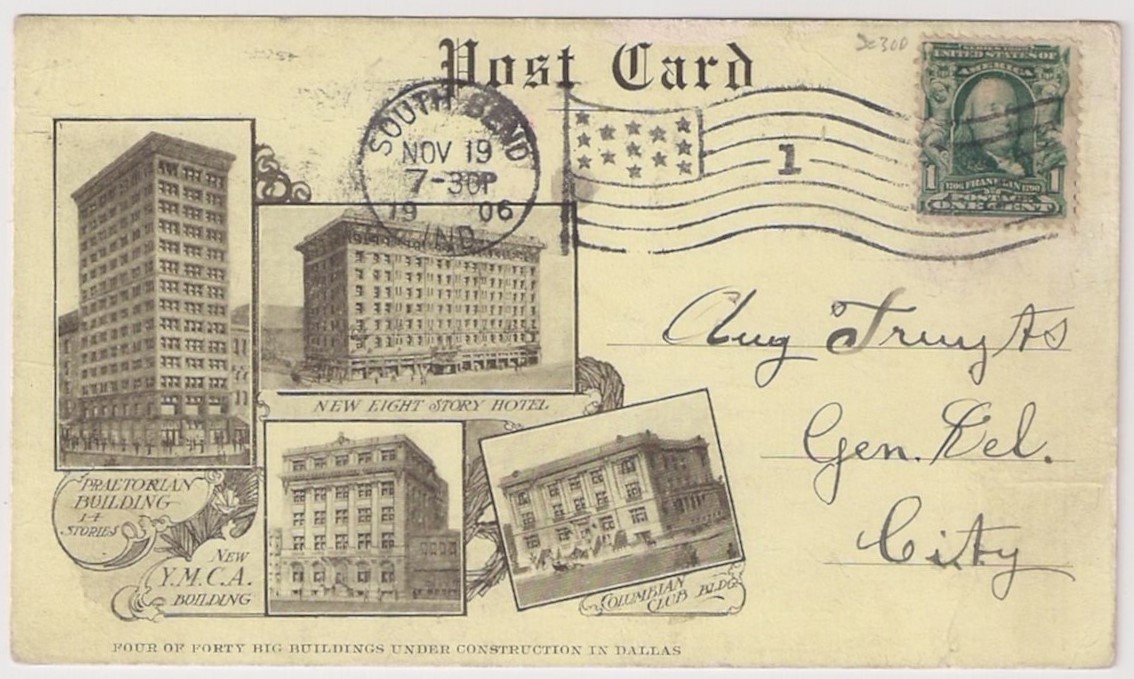 Post Card
Sc300
UNITED STATES OF
AMERICA
1 1706 FRANKLIN 1790 1
POSTAGE
ONE CENT
SOUTH BEND
NOV 19
7-30P
19 06
IND.
1
Aug
Gen. Del.
City
NEW EIGHT STORY HOTEL
PRAETORIAN
BUILDING
14
STORIES
NEW
Y.M.C.A.
BUILDING
COLUMBIAN
CLUB BLDG
FOUR OF FORTY BIG BUILDINGS UNDER CONSTRUCTION IN DALLAS